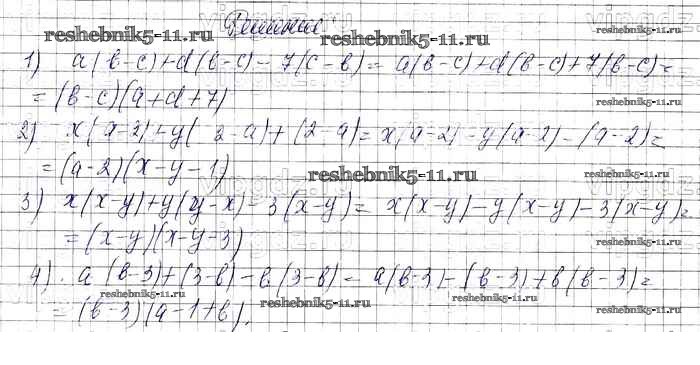 Решение
1) a(b-c)+d(b-c)-7(c-b)= a(b-c)+d(b-c)+7(b-c)=
=(b-c)(a+d+7)
2) x(a-2)+y(2-a)+(2-a)= x(a-2)-y(a-2)-(a-2)=
=(a-2)(x-y-1)
3) x(x-y)+y(y-x)-3(x-y)= x(x-y)-y(x-y)-3(x-y)=
=(x-y)(x-y-3)
4). a(b-3)+(3-b)-b(3-b)= a(b-3)-(b-3)+b(b-3)=
=(b-3)(a-1+b).
reshebnik5-11.ru
reshebnik5-11.ru
reshebnik5-11.ru
reshebnik5-11.ru
reshebnik5-11.ru
reshebnik5-11.ru
reshebnik5-11.ru
reshebnik5-11.ru
reshebnik5-11.ru
reshebnik5-11.ru
reshebnik5-11.ru
reshebnik5-11.ru